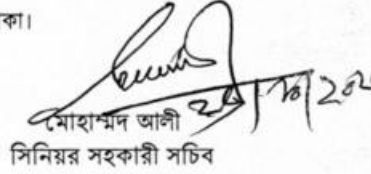 কা।
মোহাম্মদ আলী
সিনিয়র সহকারী সচিব